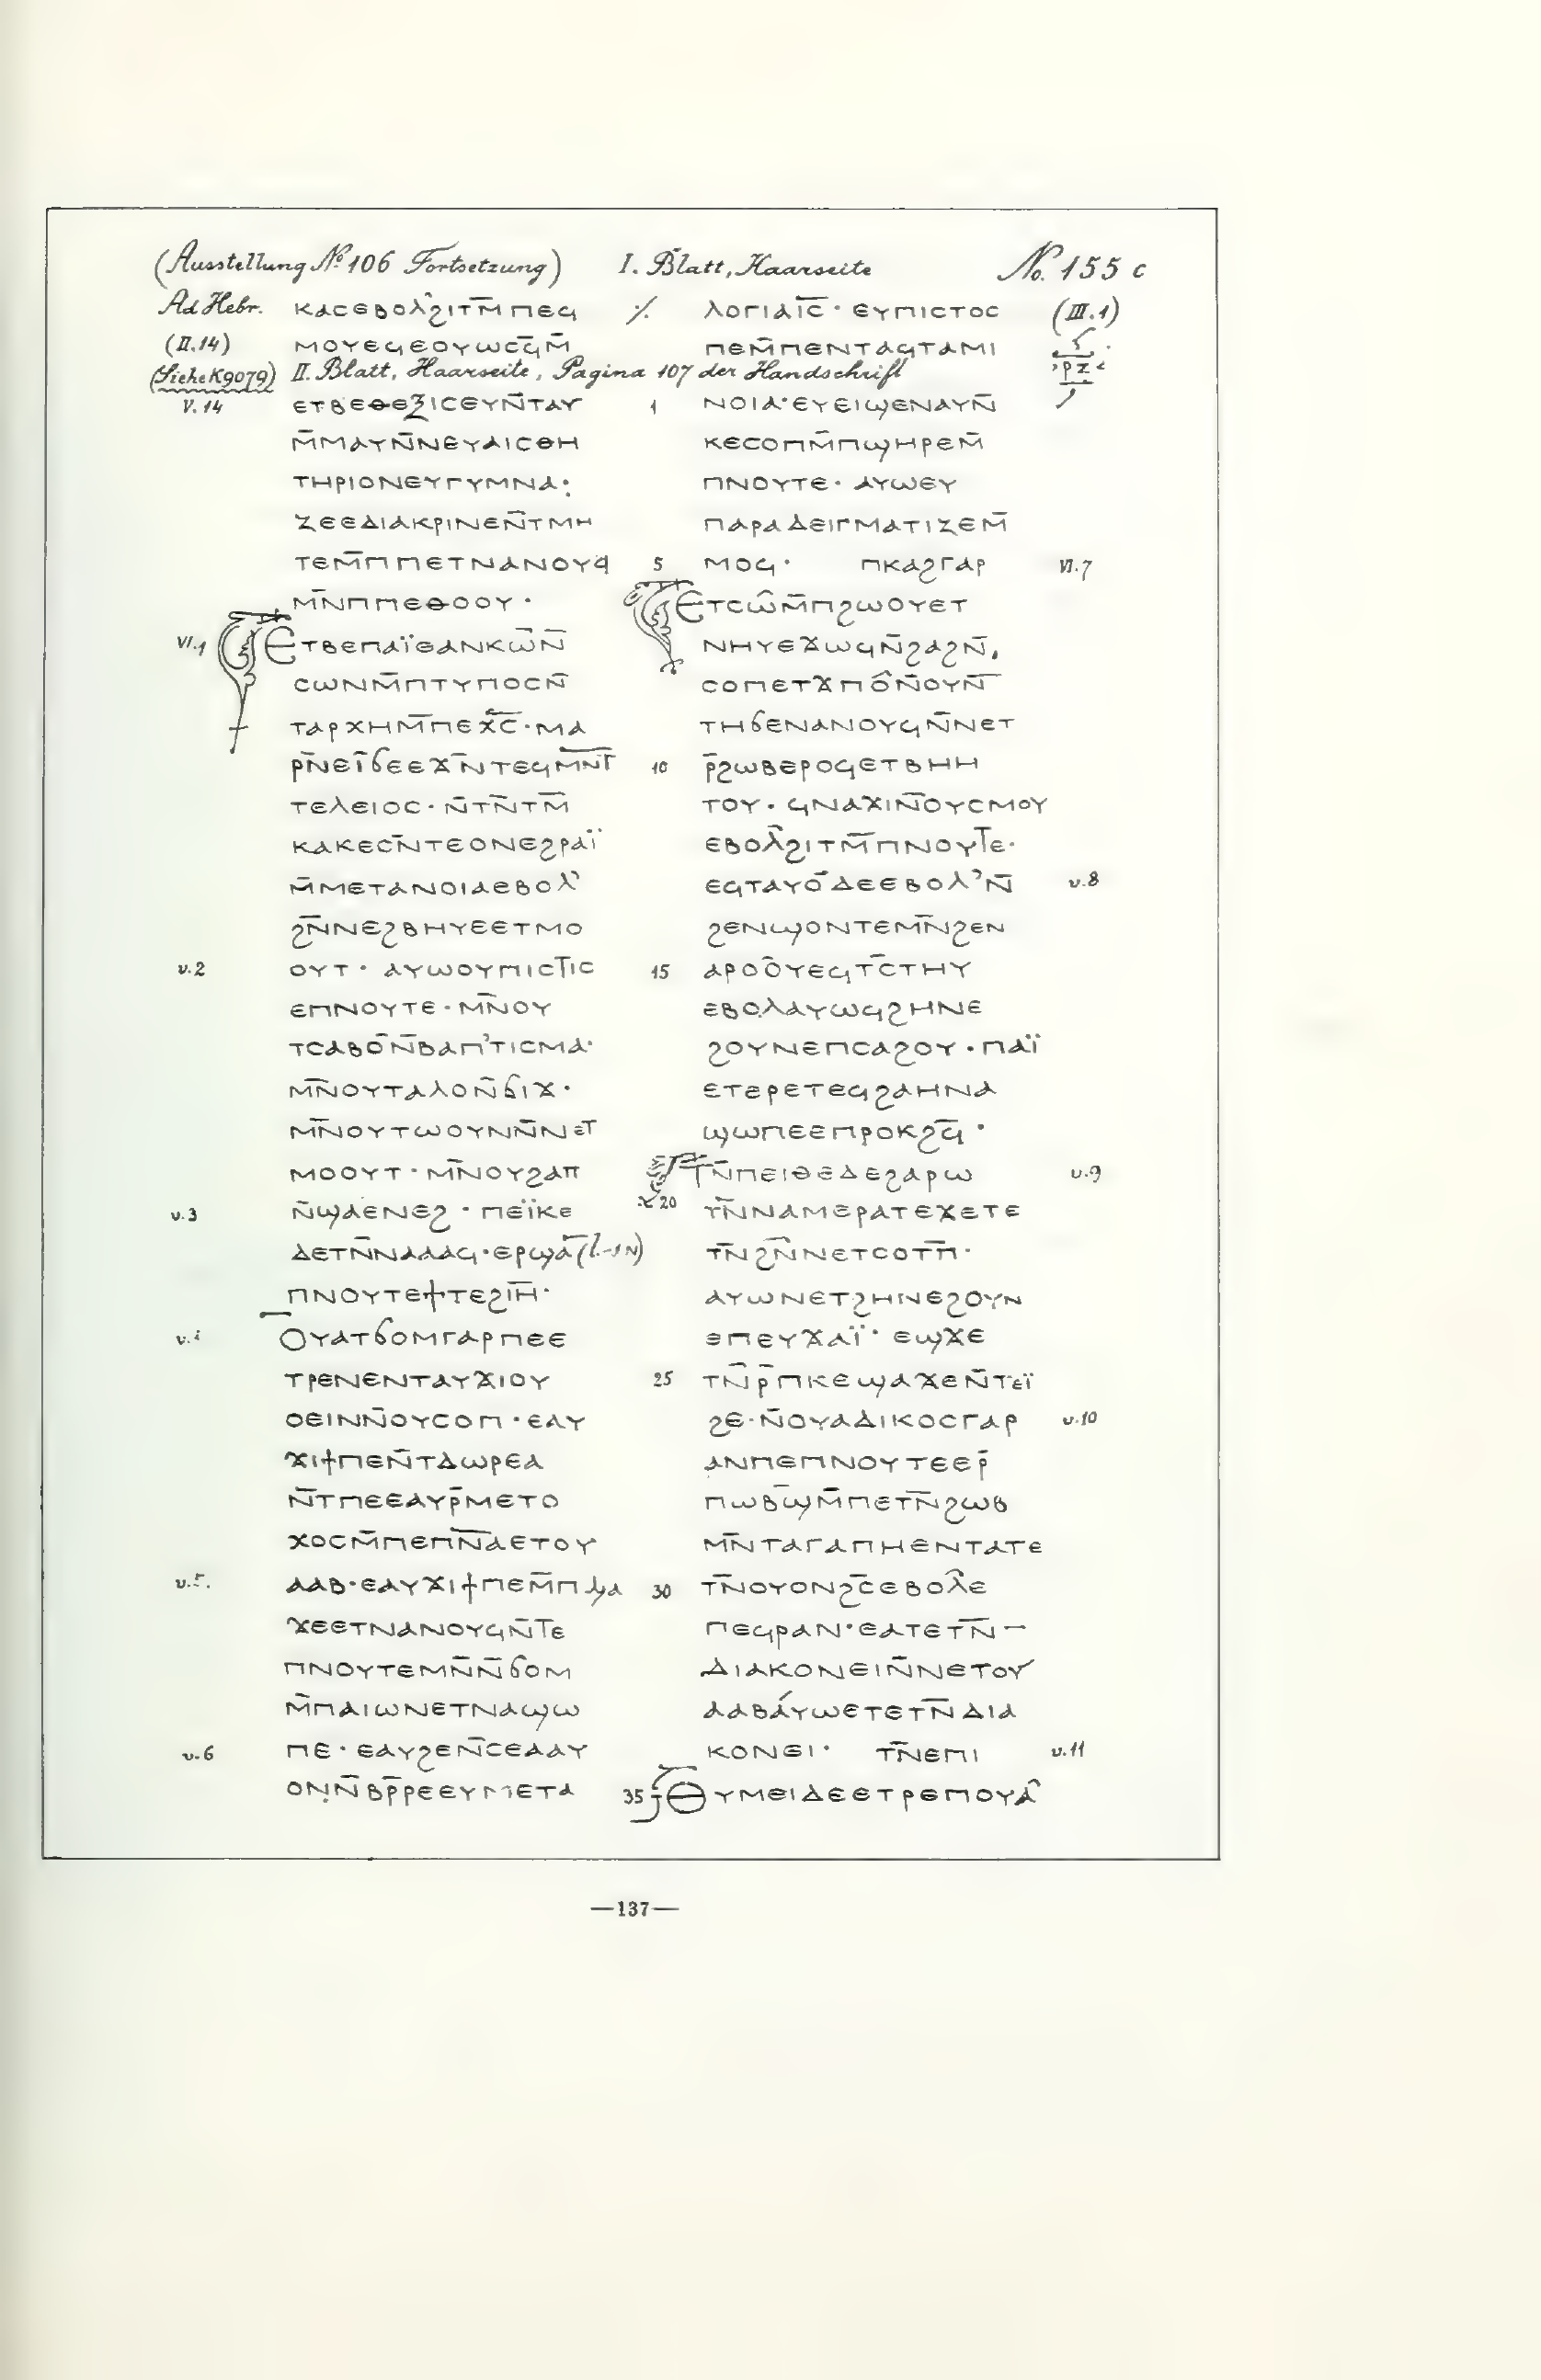 (Ausstellung No 106 Fortsetzung) I. Blatt, Haarseite No. 155 c
Ad Hebr. ⲕⲁⲥⲉⲃⲟⲗϩⲓⲧⲙ̅ⲡⲉϥ ⁒ ⲗⲟⲅⲓⲁⲓ̅ⲥ̅· ⲉⲩⲡⲓⲥⲧⲟⲥ (III.1)
(II.14) ⲙⲟⲩⲉϥⲉⲟⲩⲱⲥϥ̅ⲙ̅ ⲡⲉⲙ̅ⲡⲉⲛⲧⲁϥⲧⲁⲙⲓ
(Siehe K9079) II. Blatt, Haarseite, Pagina 107 der Handschrift ⲣⲍ
V. 14 ⲉⲧⲃⲉⲑⲉⲝⲓⲥⲉⲩⲛ̅ⲧⲁⲩ
ⲙ̅ⲙⲁⲩⲛ̅ⲛⲉⲩⲁⲓⲥⲑⲏ
ⲧⲏⲣⲓⲟⲛⲉⲩⲅⲩⲙⲛⲁ:
ⲍⲉⲉⲇⲓⲁⲕⲣⲓⲛⲉⲛ̅ⲧⲙⲏ
ⲧⲉⲙ̅ⲡⲡⲉⲧⲛⲁⲛⲟⲩϥ
ⲙ̅ⲛⲡⲡⲉⲑⲟⲟⲩ·
VI.1 ⲉⲧⲃⲉⲡⲁⲓ̈ⲉⲁⲛⲕⲱ̅ⲛ̅
ⲥⲱⲛⲙ̅ⲡⲧⲩⲡⲟⲥⲛ̅
ⲧⲁⲣⲭⲏⲙ̅ⲡⲉⲭ̅ⲥ̅·ⲙⲁ
ⲣⲛ̅ⲉⲓ̅ϭⲉⲉϫⲛ̅ⲧⲉϥⲙⲛ̅ⲧ
ⲧⲉⲗⲉⲓⲟⲥ·ⲛ̅ⲧⲛ̅ⲧⲙ̅
ⲕⲁⲕⲉⲥⲛ̅ⲧⲉⲟⲛⲉϩⲣⲁⲓ̈
ⲙ̅ⲙⲉⲧⲁⲛⲟⲓⲁⲉⲃⲟⲗ
ϩⲛ̅ⲛⲉϩⲃⲏⲩⲉⲉⲧⲙⲟ
v.2 ⲟⲩⲧ· ⲁⲩⲱⲟⲩⲡⲓⲥⲧⲓⲥ
ⲉⲡⲛⲟⲩⲧⲉ·ⲙⲛ̅ⲟⲩ
ⲧⲥⲁⲃⲟ̅ⲛ̅ⲃⲁⲡ'ⲧⲓⲥⲙⲁ·
ⲙⲛ̅ⲟⲩⲧⲁⲗⲟⲛ̅ϭⲓϫ·
ⲙⲛ̅ⲟⲩⲧⲱⲟⲩⲛⲛ̅ⲛⲉⲧ
ⲙⲟⲟⲩⲧ·ⲙⲛ̅ⲟⲩϩⲁⲡ
v.3 ⲛ̅ϣⲁⲉⲛⲉϩ·ⲡⲉⲓ̈ⲕⲉ
ⲇⲉⲧⲛ̅ⲛⲁⲁⲁϥ·ⲉⲣϣⲁ̅ (l.-ⲁⲛ)
ⲡⲛⲟⲩⲧⲉϯⲧⲉϩⲓⲏ̅·
ⲟⲩⲁⲧϭⲟⲙⲅⲁⲣⲡⲉⲉ
ⲧⲣⲉⲛⲉⲛⲧⲁⲩϫⲓⲟⲩ
ⲟⲉⲓⲛⲛ̅ⲟⲩⲥⲟⲡ·ⲉⲁⲩ
ϫⲓϯⲡⲉⲛ̅ⲧⲇⲱⲣⲉⲁ
ⲛ̅ⲧⲡⲉⲉⲁⲩⲣ̅ⲙⲉⲧⲟ
ⲭⲟⲥⲙ̅ⲡⲉⲡⲛ̅ⲁ̅ⲉⲧⲟⲩ
v.5. ⲁⲁⲃ·ⲉⲁⲩϫⲓϯⲡⲉⲙ̅ⲡϣⲁ
ϫⲉⲉⲧⲛⲁⲛⲟⲩϥⲛ̅ⲧⲉ
ⲡⲛⲟⲩⲧⲉⲙⲛ̅ⲛ̅ϭⲟⲙ
ⲙ̅ⲡⲁⲓⲱⲛⲉⲧⲛⲁϣⲱ
v.6 ⲡⲉ·ⲉⲁⲩϩⲉⲛ̅ⲥⲉⲁⲁⲩ
ⲟⲛⲛ̅ⲃⲣ̅ⲣⲉⲉⲩⲙⲉⲧⲁ
1 ⲛⲟⲓⲁ·ⲉⲩⲉⲓϣⲉⲛⲁⲩⲛ̅
ⲕⲉⲥⲟⲡⲙ̅ⲡϣⲏⲣⲉⲙ̅
ⲡⲛⲟⲩⲧⲉ·ⲁⲩⲱⲉⲩ
ⲡⲁⲣⲁⲇⲉⲓⲅⲙⲁⲧⲓⲍⲉⲙ̅
5 ⲙⲟϥ· ⲡⲕⲁϩⲅⲁⲣ VI.7
ⲉⲧⲥⲱ̂ⲙ̅ⲡϩⲱⲟⲩⲉⲧ
ⲛⲏⲩⲉϫⲱϥⲛ̅ϩⲁϩⲛ̅
ⲥⲟⲡⲉⲧϫⲡⲟ̂ⲛ̅ⲟⲩⲛ̅
ⲧⲏϭⲉⲛⲁⲛⲟⲩϥⲛ̅ⲛⲉⲧ
10 ⲣ̅ϩⲱⲃⲉⲣⲟϥⲉⲧⲃⲏⲏ
ⲧⲟⲩ·ϥⲛⲁϫⲓⲛ̅ⲟⲩⲥⲙⲟⲩ
ⲉⲃⲟⲗϩⲓⲧⲙ̅ⲡⲛⲟⲩⲧⲉ·
ⲉϥⲧⲁⲩⲟ̅ⲇⲉⲉⲃⲟⲗ'ⲛ̅ v.8
ϩⲉⲛϣⲟⲛⲧⲉⲙⲛ̅ϩⲉⲛ
15 ⲁⲣⲟⲟ̅ⲩⲉϥⲧⲥ̅ⲧⲏⲩ
ⲉⲃⲟⲗⲁⲩⲱϥϩⲏⲛⲉ
ϩⲟⲩⲛⲉⲡⲥⲁϩⲟⲩ·ⲡⲁⲓ̈
ⲉⲧⲉⲣⲉⲧⲉϥϩⲁⲏⲛⲁ
ϣⲱⲡⲉⲉⲡⲣⲟⲕϩϥ̅·
ⲧⲛ̅ⲡⲉⲓⲑⲉⲇⲉϩⲁⲣⲱ v.9
20 ⲧⲛ̅ⲛⲁⲙⲉⲣⲁⲧⲉϫⲉⲧⲉ
ⲧⲛ̅ϩⲛ̅ⲛⲉⲧⲥⲟⲧⲡ̅·
ⲁⲩⲱⲛⲉⲧϩⲏⲛⲉϩⲟⲩⲛ
ⲉⲡⲉⲩϫⲁⲓ̈·ⲉϣϫⲉ
25 ⲧⲛ̅ⲣ̅ⲡⲕⲉϣⲁϫⲉⲛ̅ⲧⲉⲓ̈
ϩⲉ·ⲛ̅ⲟⲩⲁⲇⲓⲕⲟⲥⲅⲁⲣ v.10
ⲁⲛⲡⲉⲡⲛⲟⲩⲧⲉⲉⲣ̅
ⲡⲱⲃϣ̅ⲙ̅ⲡⲉⲧⲛ̅ϩⲱⲃ
ⲙⲛ̅ⲧⲁⲅⲁⲡⲏⲉⲛⲧⲁⲧⲉ
30 ⲧⲛ̅ⲟⲩⲟⲛϩⲥ̅ⲉⲃⲟⲗⲉ
ⲡⲉϥⲣⲁⲛ·ⲉⲁⲧⲉⲧⲛ̅
ⲇⲓⲁⲕⲟⲛⲉⲓⲛ̅ⲛⲉⲧⲟⲩ
ⲁⲁⲃⲁⲩⲱⲉⲧⲉⲧⲛ̅ⲇⲓⲁ
ⲕⲟⲛⲉⲓ· ⲧⲛ̅ⲉⲡⲓ v.11
35 ⲑⲩⲙⲉⲓⲇⲉⲉⲧⲣⲉⲡⲟⲩⲁ̂
—137—